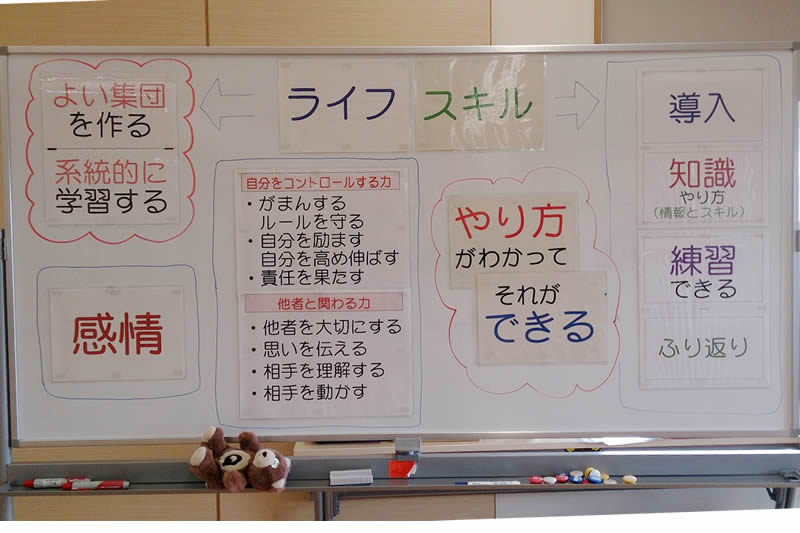 よい集団
を作る
系統的に
学習する
感情
ライフ スキル
自分をコントロールする力
・がまんする
ルールを守る
・自分を励ます
自分を高め伸ばす
・責任を果たす
他者と関わる力
・他者を大切にする
・思いを伝える
・相手を理解する
・相手を動かす
やり方
がわかって
それが
できる
導入
知識
やり方
(情報とスキル)
練習
できる
ふり返り